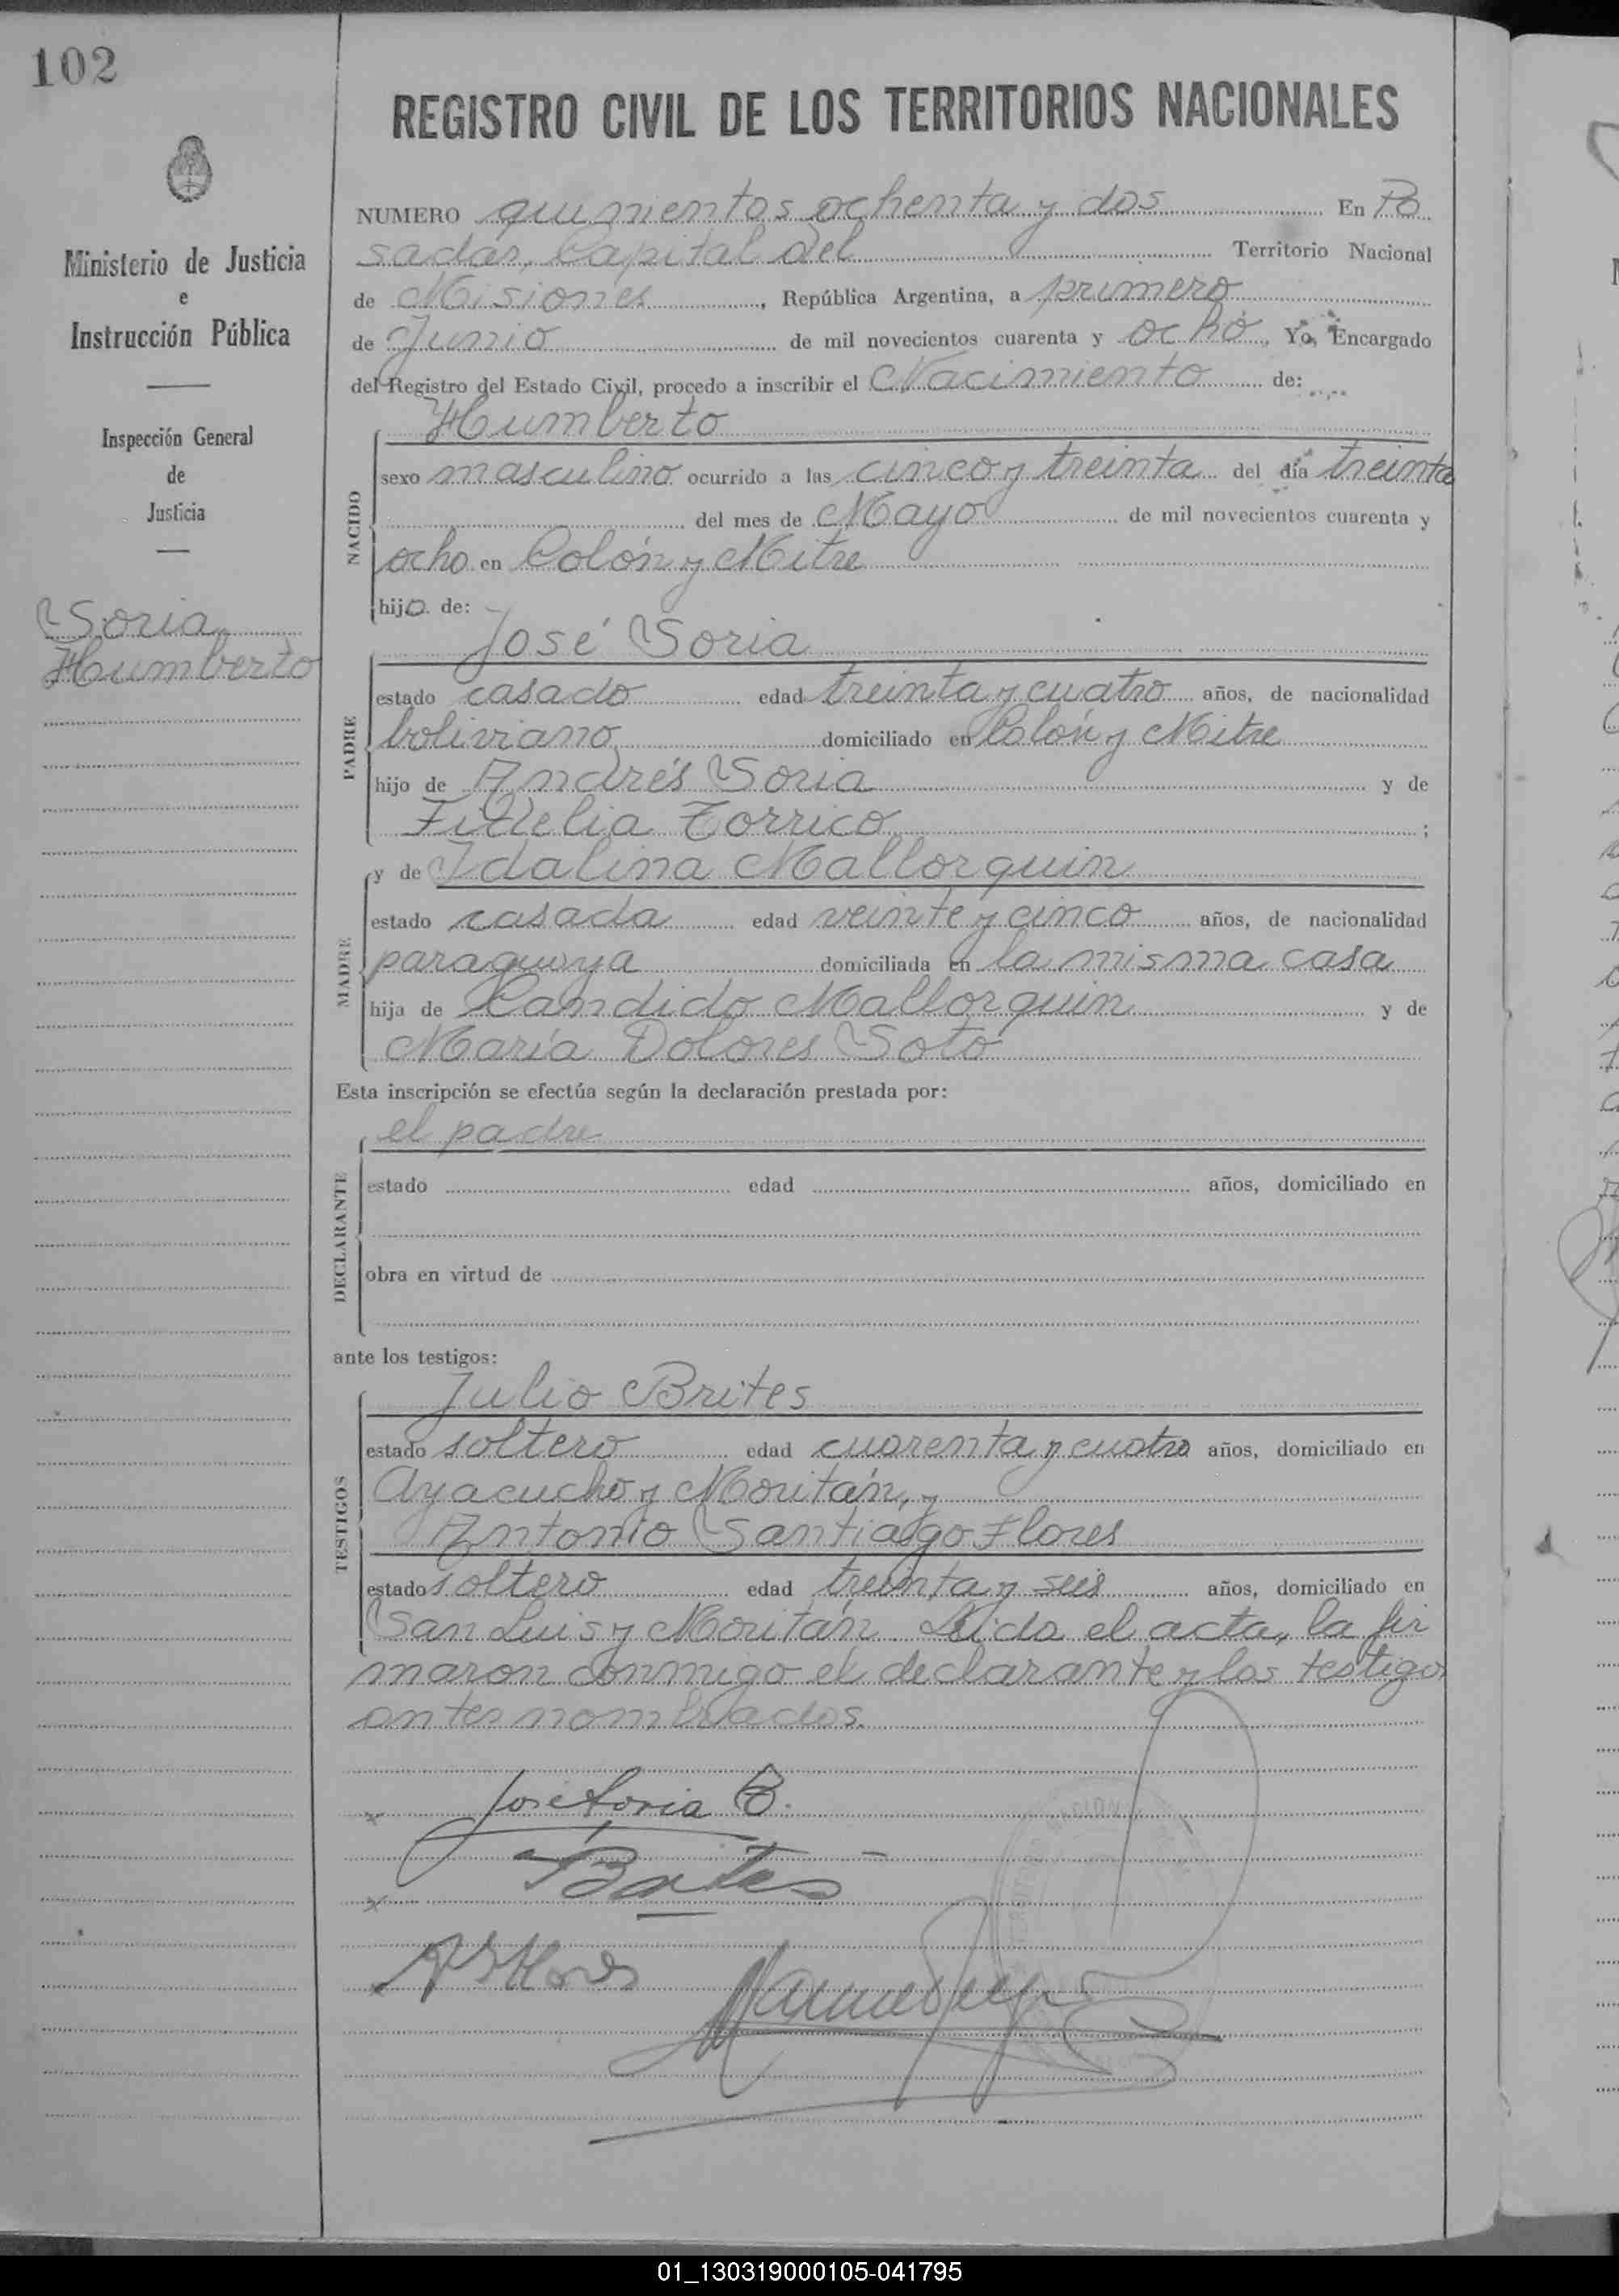 102
REGISTRO CIVIL DE LOS TERRITORIOS NACIONALES
Ministerio de Justicia
e
Instrucción Pública
Inspección General
de
Justicia
Soria
Humberto
NUMERO quinientos ochenta y dos En Po
sadas, Capital del Territorio Nacional
de Misiones, República Argentina, a primero
de Junio de mil novecientos cuarenta y ocho. Yo, Encargado
del Registro del Estado Civil, procedo a inscribir el Nacimiento de:
Humberto
NACIDO
sexo masculino ocurrido a las cinco y treinta del día treinta
del mes de Mayo de mil novecientos cuarenta y
ocho en Colón y Mitre
hijo de:
José Soria
PADRE
estado casado edad treinta y cuatro años, de nacionalidad
boliviano domiciliado en Colón y Mitre
hijo de Andrés Soria y de
Fidelia Torrico;
y de Idalina Mallorquin
MADRE
estado casada edad veinte y cinco años, de nacionalidad
paraguaya domiciliada en la misma casa
hija de Candido Mallorquin y de
María Dolores Soto
Esta inscripción se efectúa según la declaración prestada por:
el padre
DECLARANTE
estado edad años, domiciliado en
obra en virtud de
ante los testigos:
Julio Brites
TESTIGOS
estado soltero edad cuarenta y cuatro años, domiciliado en
Ayacucho y Moritán, y
Antonio Santiago Flores
estado soltero edad treinta y seis años, domiciliado en
San Luis y Moritán. Leida el acta, la fir
maron conmigo el declarante y los testigos
antes nombrados.
x José Soria T.
Brites
x
A S Flores
01_130319000105-041795